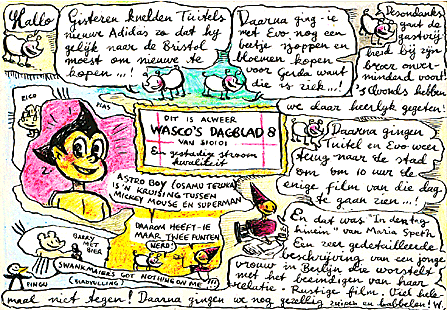 Hallo
Gisteren knelden Tuitels
nieuwe Adidas zo dat hij
gelijk naar de Bristol
moest om nieuwe te
kopen...!
Daarna ging-ie
met Evo nog een
beetje shoppen en
bloemen kopen
voor Gerda want
die is ziek...!
Desondanks
gaat de
gastvrij
heid bij zijn
broer onver-
minderd voort
's Avonds hebben
we daar heerlijk gegeten
DIT IS ALWEER
WASCO'S DAGBLAD 8
VAN 510101
En gestadig stroom
kwaliteit
ASTRO BOY (OSAMU TEZUKA)
IS 'N KRUISING TUSSEN
MICKEY MOUSE EN SUPERMAN
DAAROM HEEFT-IE
MAAR TWEE PUNTEN
NERD!
BARRY
MET
BIER
SWANKMAJERS GOT NOTHING ON ME !!!
PINGU
Daarna gingen
Tuitel en Evo weer
terug naar de stad
om om 10 uur de
enige film van die dag
te gaan zien...!
En dat was "In den tag
hinein" van Maria Speth
Een zeer gedetailleerde
beschrijving van een jonge
vrouw in Berlijn die worstelt
met het beeindigen van haar
relatie. Rustige film. Viel hele-
maal niet tegen! Daarna gingen we nog gezellig zuipen en babbelen! W.